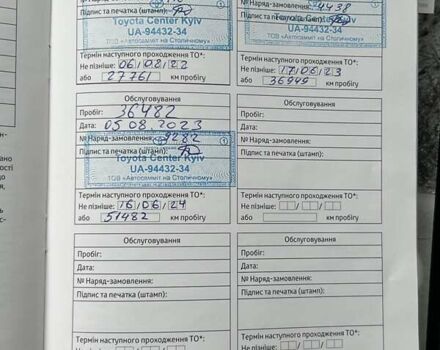 Підпис та печатка (штамп):
Toyota Center Kyiv
UA-94432-34
ТОВ «Автосаміт на Столичному»
Термін наступного проходження ТО*:
Не пізніше: 06/08/22
або 27761 км пробігу
№ Наряд-замовлення: 4438
Підпис та печатка (штамп):
Toyota Center Kyiv
UA-94432-34
ТОВ «Автосаміт на Столичному»
Термін наступного проходження ТО*:
Не пізніше: 17/06/23
або 36949 км пробігу
Обслуговування
Пробіг: 36482
Дата: 05.08.2023
№ Наряд-замовлення: 9282
Підпис та печатка (штамп):
Toyota Center Kyiv
UA-94432-34
ТОВ «Автосаміт на Столичному»
Термін наступного проходження ТО*:
Не пізніше: 16/06/24
або 51482 км пробігу
Обслуговування
Пробіг:
Дата:
№ Наряд-замовлення:
Підпис та печатка (штамп):
Термін наступного проходження ТО*:
Не пізніше:
або км пробігу
Обслуговування
Пробіг:
Дата:
№ Наряд-замовлення:
Підпис та печатка (штамп):
Термін наступного проходження ТО*:
Не пізніше:
Обслуговування
Пробіг:
Дата:
№ Наряд-замовлення:
Підпис та печатка (штамп):
Термін наступного проходження ТО*:
Не пізніше: